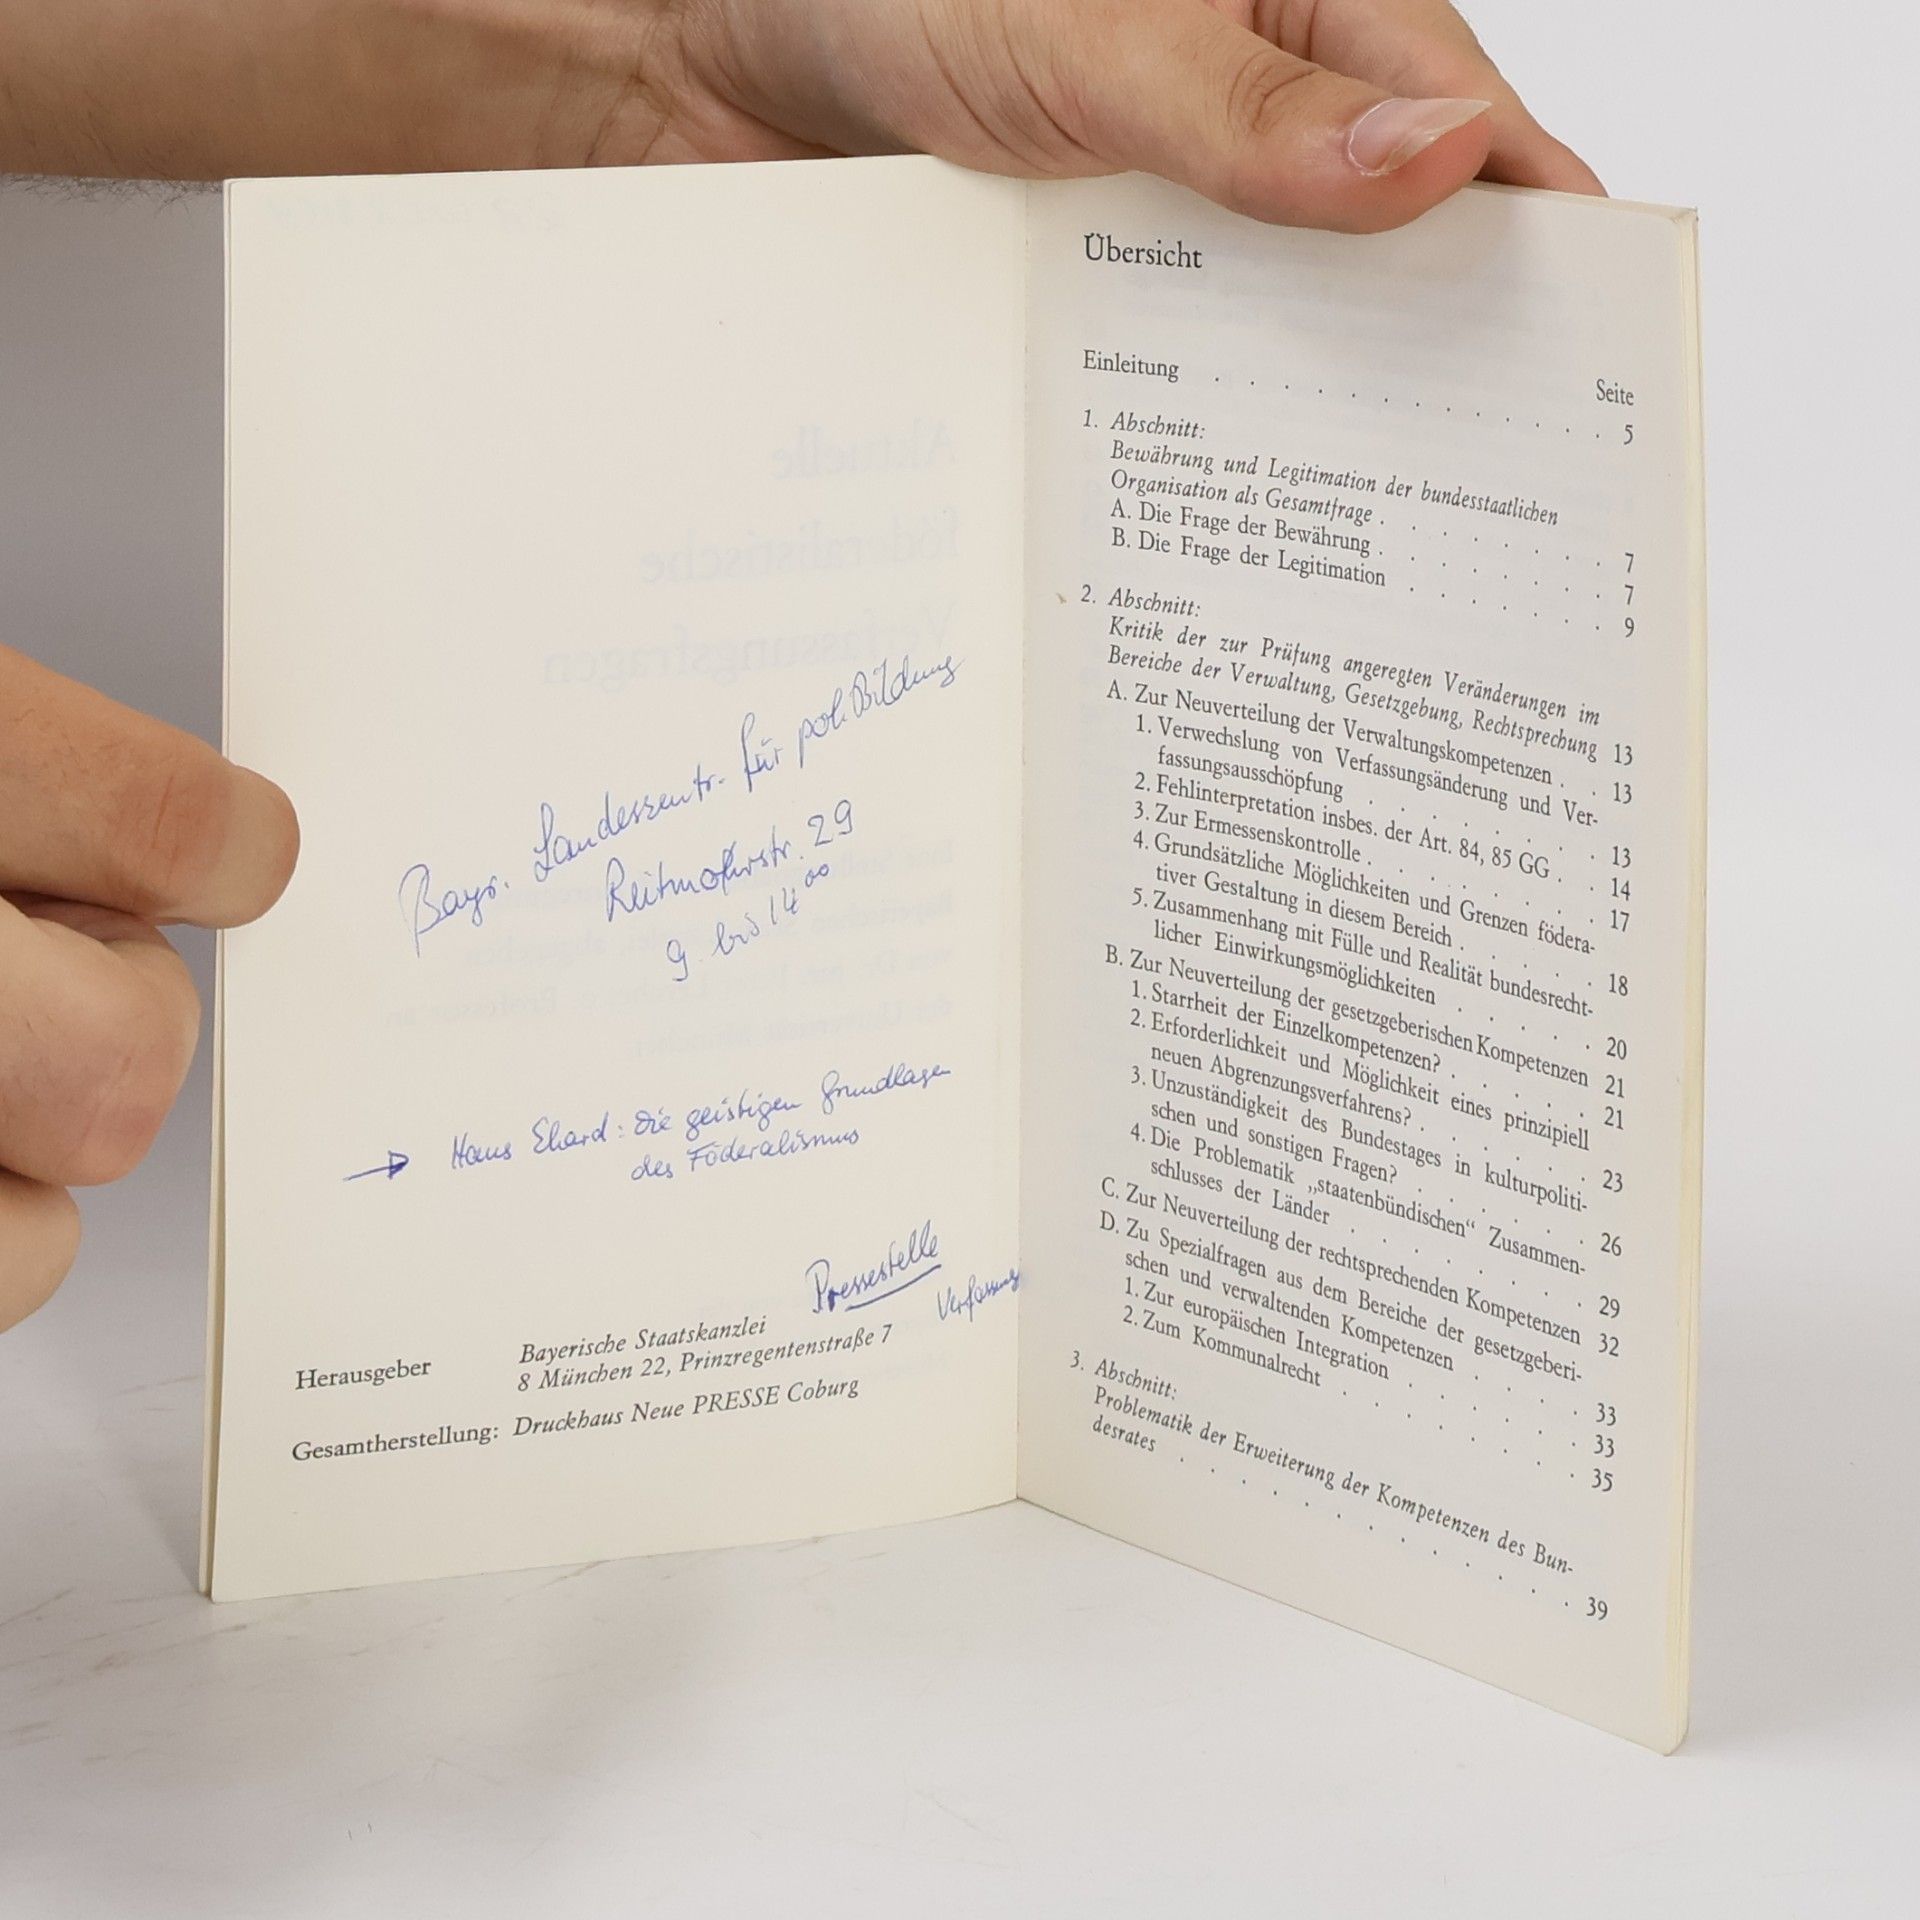 Bayr. Landeszentr. für pol. Bildung
Reitmorstr. 29
9 bis 14⁰⁰
Hans Ehard: Die geistigen Grundlagen
des Föderalismus
Pressestelle
Verfassung
Herausgeber Bayerische Staatskanzlei
8 München 22, Prinzregentenstraße 7
Gesamtherstellung: Druckhaus Neue PRESSE Coburg
Übersicht
Seite
Einleitung . . . . . . . . . . . . 5
1. Abschnitt:
Bewährung und Legitimation der bundesstaatlichen
Organisation als Gesamtfrage . . . . . . . 7
A. Die Frage der Bewährung . . . . . . . 7
B. Die Frage der Legitimation . . . . . . 9
2. Abschnitt:
Kritik der zur Prüfung angeregten Veränderungen im
Bereiche der Verwaltung, Gesetzgebung, Rechtsprechung 13
A. Zur Neuverteilung der Verwaltungskompetenzen . . 13
1. Verwechslung von Verfassungsänderung und Ver-
fassungsausschöpfung . . . . . . . 13
2. Fehlinterpretation insbes. der Art. 84, 85 GG . . 14
3. Zur Ermessenskontrolle . . . . . . . 17
4. Grundsätzliche Möglichkeiten und Grenzen födera-
tiver Gestaltung in diesem Bereich . . . . . 18
5. Zusammenhang mit Fülle und Realität bundesrecht-
licher Einwirkungsmöglichkeiten . . . . . 20
B. Zur Neuverteilung der gesetzgeberischen Kompetenzen 21
1. Starrheit der Einzelkompetenzen? . . . . . 21
2. Erforderlichkeit und Möglichkeit eines prinzipiell
neuen Abgrenzungsverfahrens? . . . . . . 23
3. Unzuständigkeit des Bundestages in kulturpoliti-
schen und sonstigen Fragen? . . . . . . 26
4. Die Problematik „staatenbündischen“ Zusammen-
schlusses der Länder . . . . . . . 29
C. Zur Neuverteilung der rechtsprechenden Kompetenzen 32
D. Zu Spezialfragen aus dem Bereiche der gesetzgeberi-
schen und verwaltenden Kompetenzen . . . . 33
1. Zur europäischen Integration . . . . . . 33
2. Zum Kommunalrecht . . . . . . . 35
3. Abschnitt:
Problematik der Erweiterung der Kompetenzen des Bun-
desrates . . . . . . . . . . . . . 39